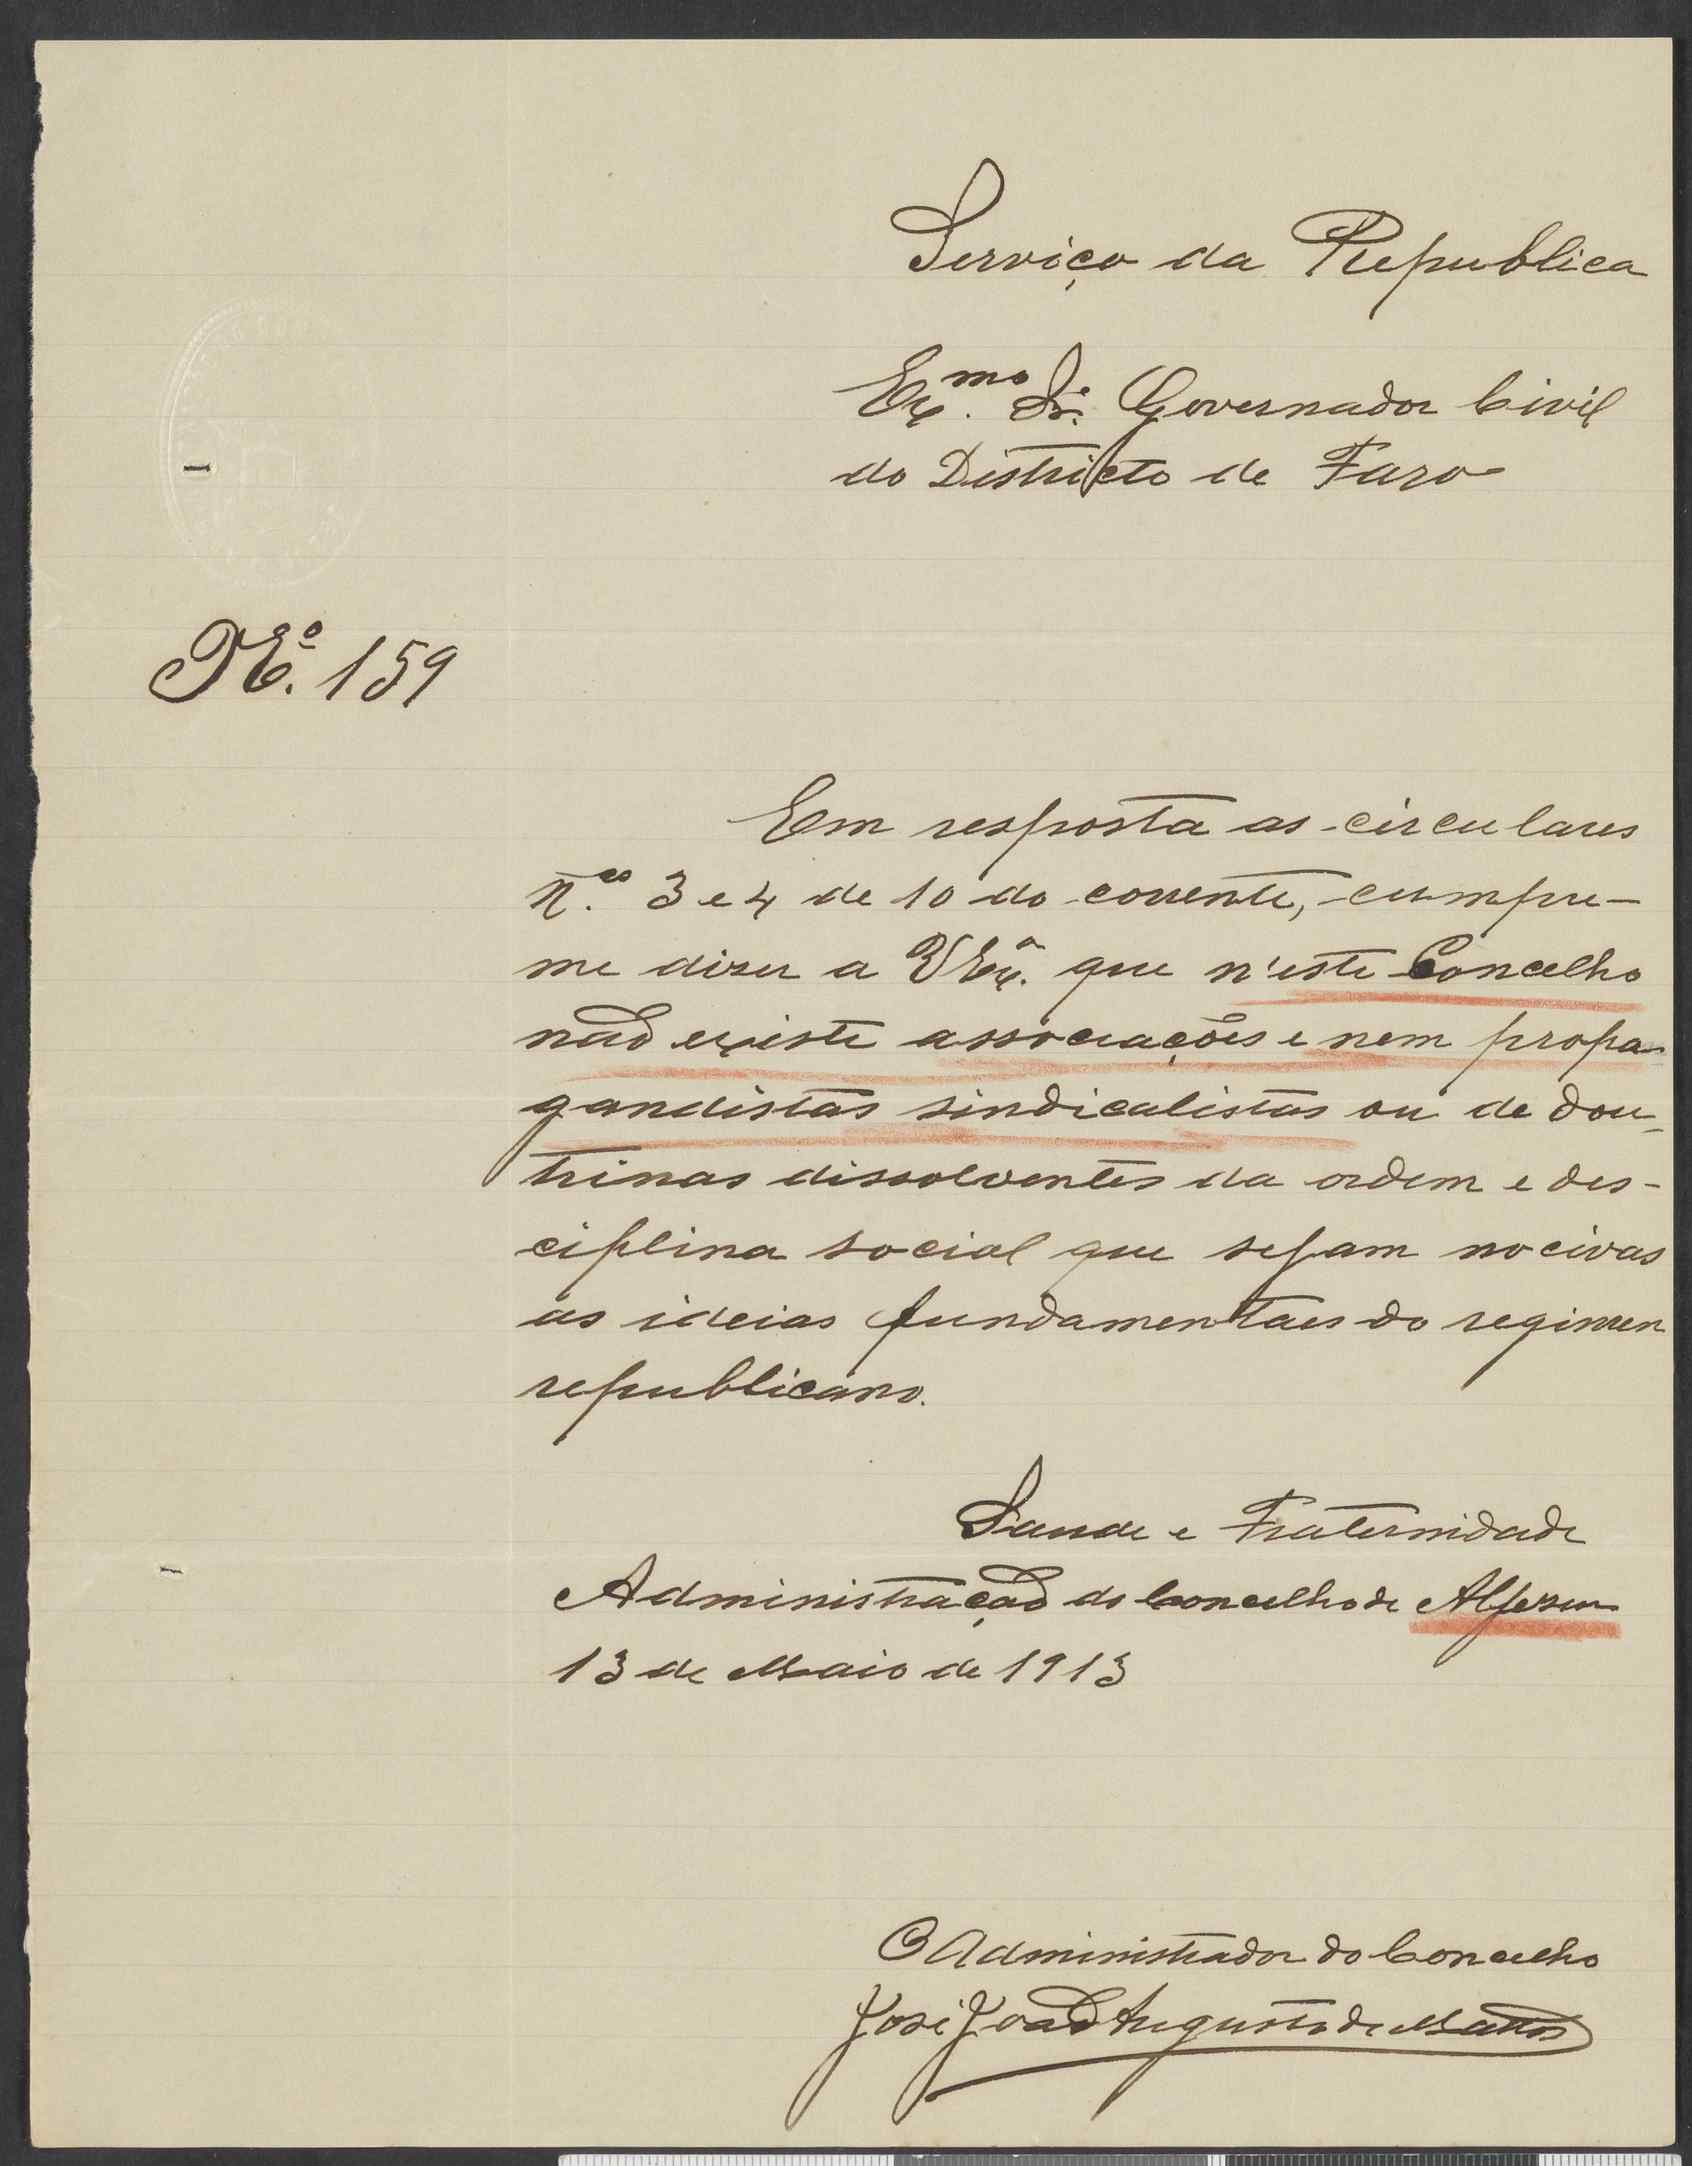 Serviço da Republica
Exmo. Sr. Governador Civil
do Districto de Faro
No. 159
Em resposta as circulares
N.os 3 e 4 de 10 do corrente, cumpre-
me dizer a V Exa. que n'este Concelho
não existe associações e nem propa-
gandistas sindicalistas ou de dou-
trinas dissolventes da ordem e des-
ciplina social que sejam nocivas
ás ideias fundamentaes do regimen
republicano.
Saude e Fraternidade
Administração do Concelho de Alfezur
13 de Maio de 1913
O Administrador do Concelho
José João Augusto de Mattos